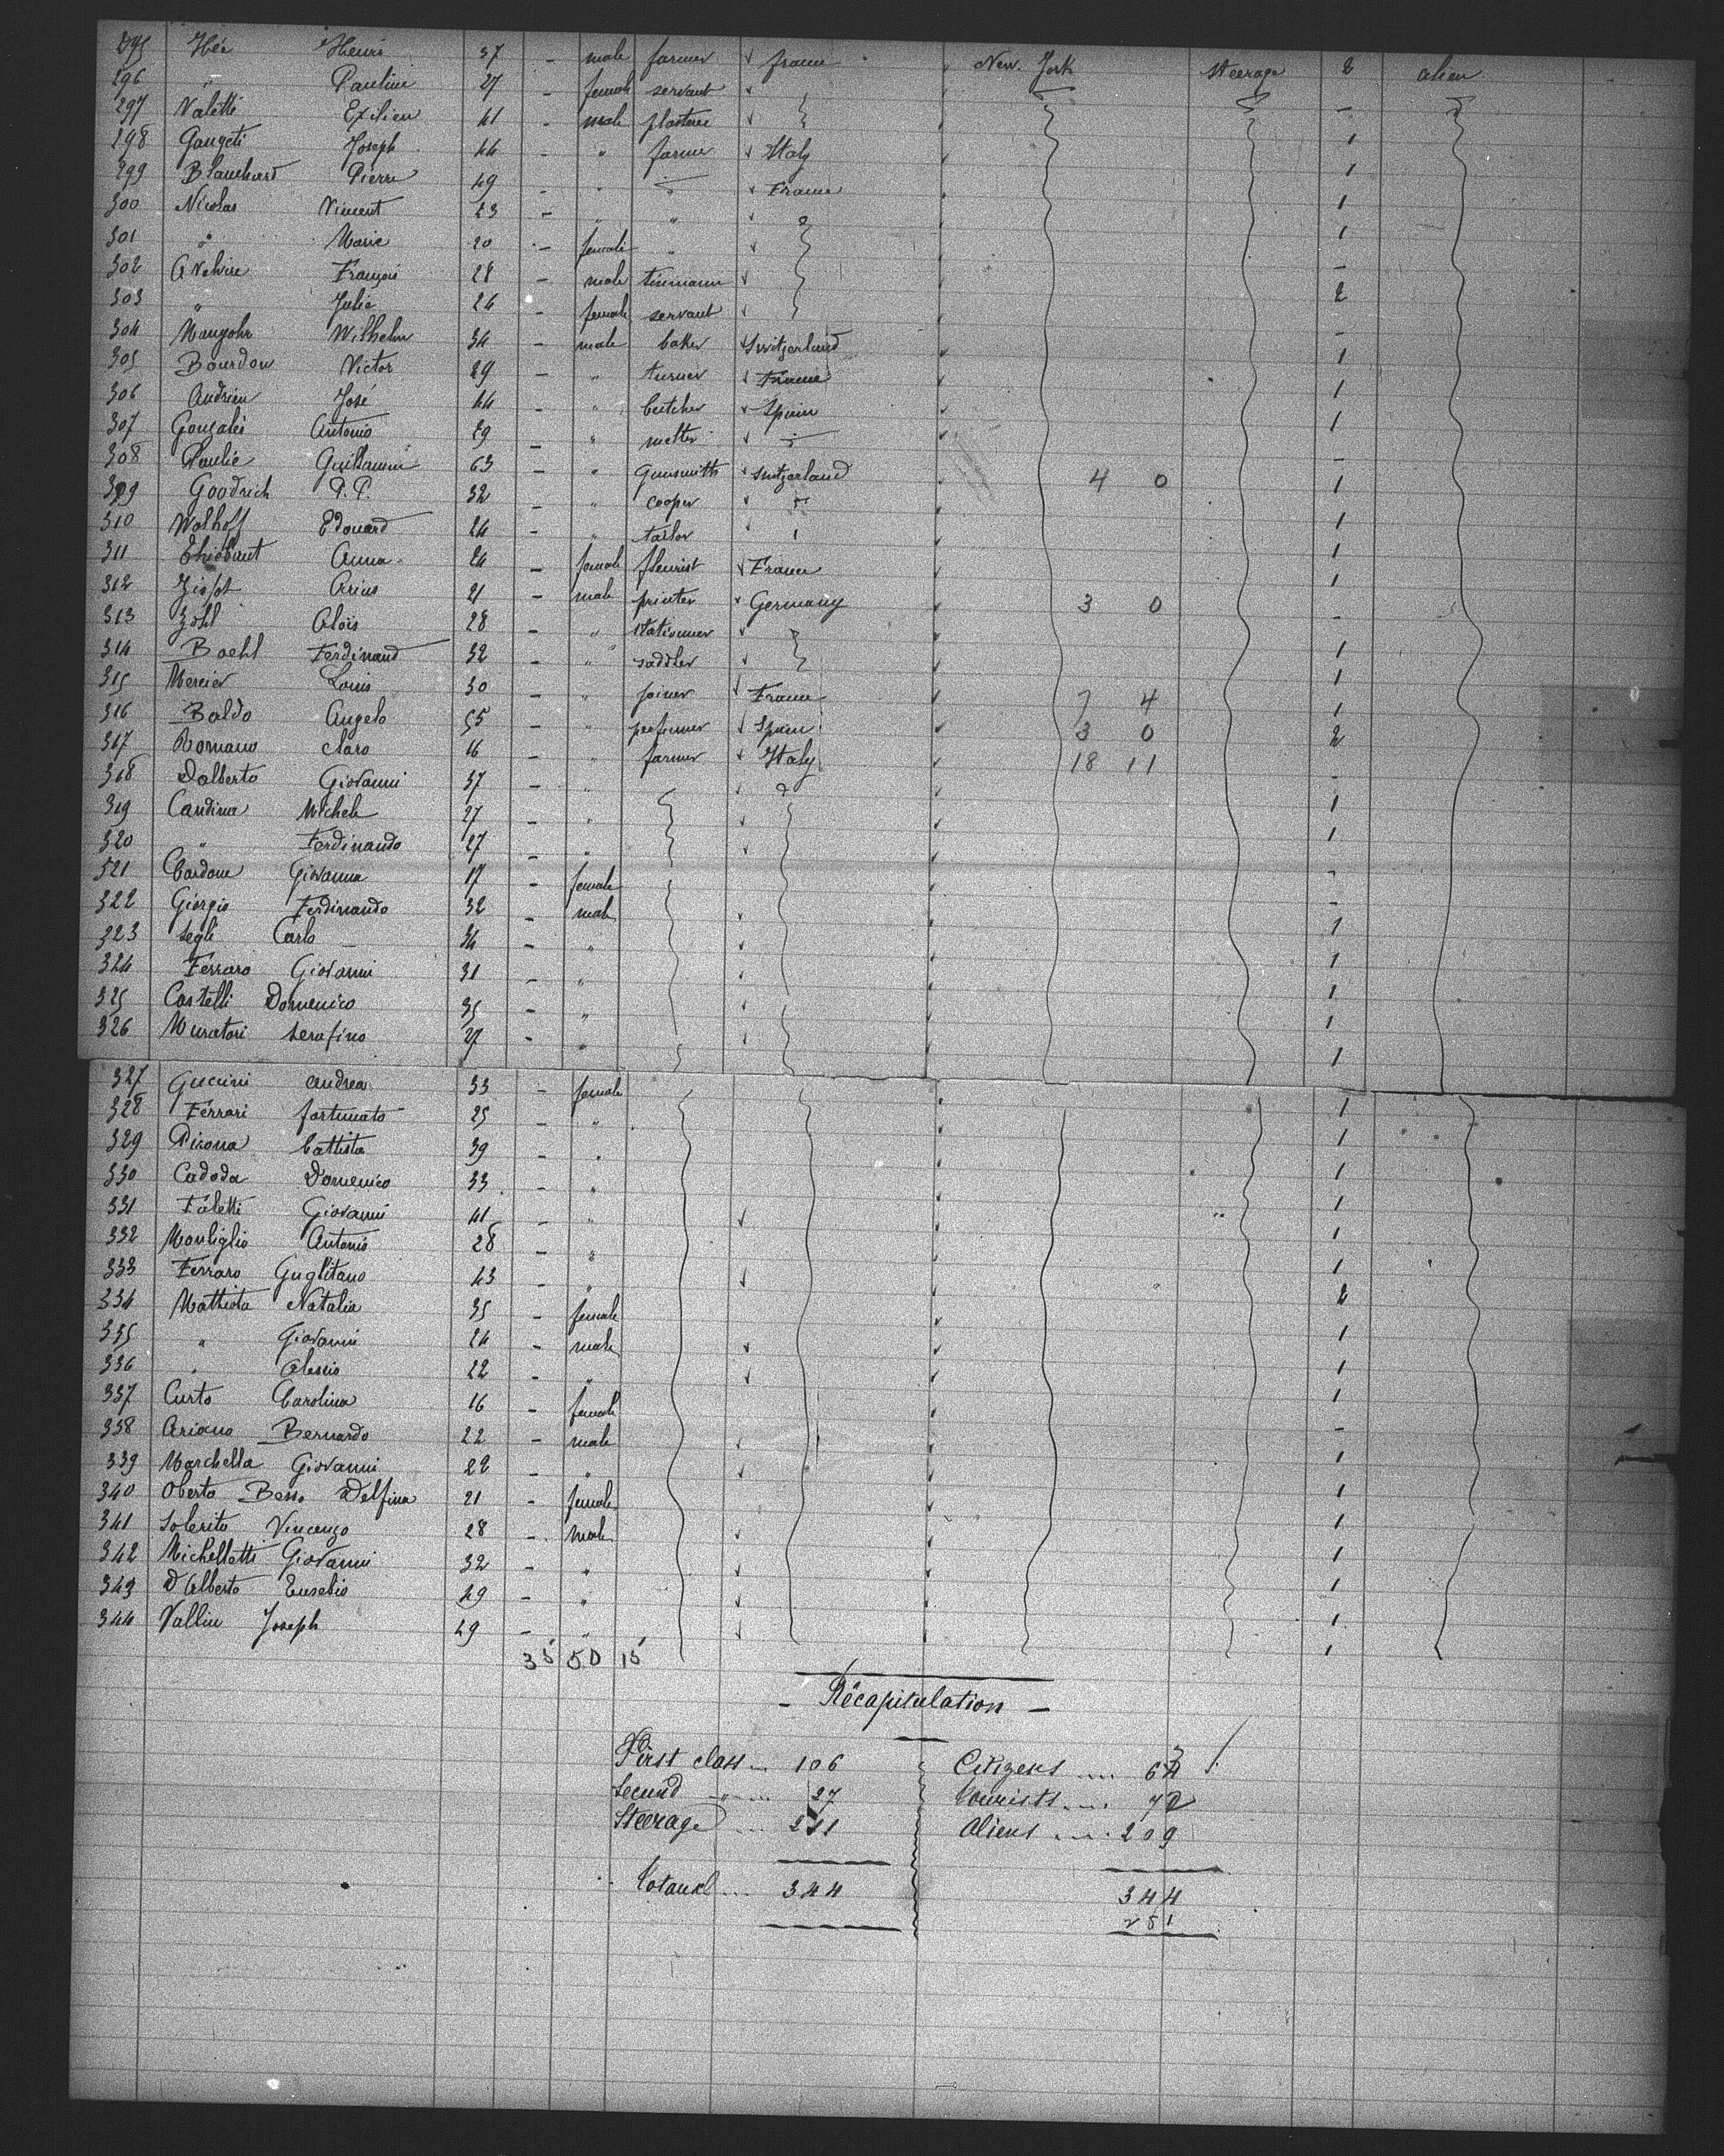 295 Hée Henri 37 - male farmer √ france New. York steerage 2 alien
296 " Pauline 27 - female servant √ -
297 Valetti 41 - male √ 1
298 Joseph 44 - " farmer √ Italy 1
299 Blanchard Pierre 49 - " " √ France 1
300 Nicolas Vincent 23 - " " √ 1
301 " Marie 20 - female " √ -
302 François 28 - male √ 2
303 " Julie 24 - female servant √ -
304 Wilhelm 34 - male baker √ Switzerland 1
305 Bourdon Victor 29 - " turner √ France 1
306 Andrieu José 44 - " butcher √ Spain 1
307 Gonzalès Antonio 29 - " √ " -
308 63 - " gunsmith √ Switzerland 4 0 1
309 Goodrich P. P. 32 - " cooper √ " 1
310 Wolhoff Edouard 24 - " tailor √ " 1
311 Thiébaut Anna 24 - female fleurist √ France 1
312 21 - male printer √ Germany 3 0 -
313 Zohl Alois 28 - " stationner √ 1
314 Boehl Ferdinand 32 - " saddler √ 1
315 Mercier Louis 30 - " joiner √ France 7 4 1
316 Baldo Angelo 55 - " perfumer √ Spain 3 0 2
317 Romano Claro 16 - " farmer √ Italy 18 11 -
318 Dalberto Giovanni 37 - " √ 1
319 Candina Michele 27 - " √ 1
320 " Ferdinando 27 - " √ -
321 Cardone Giovanna 17 - female -
322 Giorgio Ferdinando 32 - male √ 1
323 Segli Carlo 34 - " √ 1
324 Ferraro Giovanni 31 - " √ 1
325 Castelli Domenico 35 - " √ 1
326 Muratori Serafino 27 - " √ 1
327 Guccini Andrea 33 - female 1
328 Ferrari fortunato 25 - " 1
329 Pirona battista 39 - " 1
330 Cadoda Domenico 33 - " 1
331 Faletti Giovanni 41 - " √ 1
332 Monliglio Antonio 28 - " 1
333 Ferraro Guglitano 43 - " √ 2
334 Mattiota Natalia 35 - female 1
335 " Giovanni 24 - male √ 1
336 " Alessio 22 - " √ 1
337 Curto Carolina 16 - female -
338 Ariano Bernardo 22 - male √ 1
339 Marchella Giovanni 22 - " √ 1
340 Oberto Besso Delfina 21 - female 1
341 Solerito Vincenzo 28 - male √ 1
342 Michelletti Giovanni 32 - " √ 1
343 D'Alberto Eusebio 29 - " √ 1
344 Vallin Joseph 29 - " √ 1
35 50 15
- Récapitulation -
First class ... 106 Citizens .... 63
Secund " ... 27 Tourists .... 72
Steerage ... 211 Aliens .... 209
Totaux ... 344 344
251